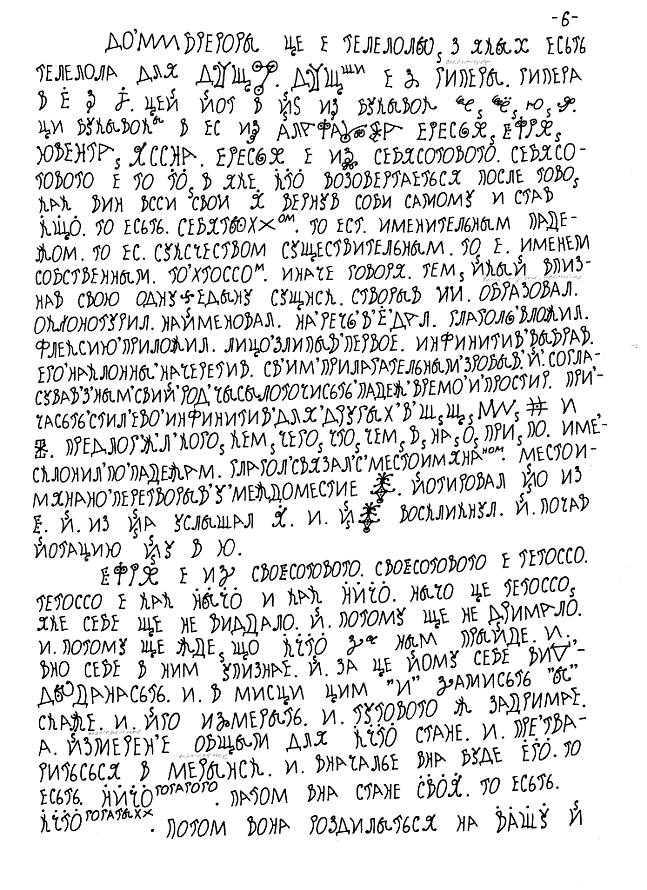 -6-
ДО'МИ ВРЕРОРЫ ЦЕ Е ТЕЛЕЛОЛЫ, З ЯКЫХ ЕСЬТЬ
ТЕЛЕЛОЛА ДЛЯ Е З ГИПЕРЫ. ГИПЕРА
В Ё З ЦЕЙ ЙОТ В ИЗ БУКЫВОК Ю,
ЦИ БУКЫВОКЫ В ЕС ИЗ ЕРЕСЬЯ, ЕФРЯ,
ЮВЕНТР, ЯССНА. ЕРЕСЬЯ Е ИЗ СЕБЯСОТОВОТО. СЕБЯСО-
ТОВОТО Е ТО ТО, В ЯКЕ КТО ВОЗОВЕРТАЕТЬСЯ ПОСЛЕ ТОВО,
КАК ВИН ВССИ СВОИ Я ВЕРНУВ СОБИ САМОМУ И СТАВ
КЩО. ТО ЕСТЬ. ТО ЕСТ. ИМЕНИТЕЛЬНЫМ ПАДЕ-
ЖОМ. ТО ЕС. СУКСЧЕСТВОМ СУЩЕСТВИТЕЛЬНЫМ. ТО Е. ИМЕНЕМ
СОБСТВЕННЫМ. ТО'ХТОССОМ. ИНАЧЕ ГОВОРЯ. ТЕМ, ЙКЫЙ ВПИЗ-
НАВ СВОЮ ОДНУ ЕДЫНУ СУЩНСК. СТВОРЫВ ИИ. ОБРАЗОВАЛ.
ОКЛОНОТУРИЛ. НАИМЕНОВАЛ. НА'РЕЧЬ'В'Ё'ДАЛ. ГЛАГОЛЬ'ВЛОЖИЛ.
ФЛЕКСИЮ'ПРИЛОЖИЛ. ЛИЦО'ЗЛИПЫВ'ПЕРВОЕ. ИНФИНИТИВ'ВЫБРАВ.
ЕГО'НАКЛОННЫ'НАЧЕРЕТИВ. СВ'ИМ'ПРИЛАГАТЕЛЬНЫМ'ЗРОБЫВ. И. СОГЛА-
СУВАВ'З'НЫМ'СВИЙ'РОД' ПАДЕЖ'ВРЕМО'И'ПРОСТИР. ПРИ'-
ЧАСЬТЬ'СТИЛ'ЕВО'ИНФИНИТИВ'ДЛЯ'ДРУГЫХ'В'Щ, Щ, И
ПРЕДЛОГ'Ж'Л'КОГО, КЕМ, ЧЕГО, ЧТО, ЧЕМ, В, НА, О, ПРИ, ПО. ИМЕ'-
СКЛОНИЛ'ПО'ПАДЕЖАМ. ГЛАГОЛ'СВЯЗАЛ'С'МЕСТОИМЯНАНОМ. МЕСТОИ-
МЯНАНО'ПЕРЕТВОРЫВ'У'МЕЖДОМЕСТИЕ ЙОТИРОВАЛ ЙО ИЗ
Е. Й. ИЗ ЙА УСЛЫШАЛ Я. И. ВОСКЛИКНУЛ. Й. ПОЧАВ
ЙОТАЦИЮ ЙУ В Ю.
ЕФРЯ Е ИЗ СВОЕСОТОВОТО. СВОЕСОТОВОТО Е ТЕТОССО.
ТЕТОССО Е КАК НЫЧО И КАК НИЧО. НЫЧО ЦЕ ТЕТОССО,
ЯКЕ СЕБЕ ЩЕ НЕ ВИДДАЛО. Й. ПОТОМУ ЩЕ НЕ ДРИМАЛО.
И. ПОТОМУ ЩЕ ЖДЕ, ЩО КТО З НЫМ ПРЫЙДЕ. И.
ВНО СЕБЕ В НИМ УПИЗНАЕ. Й. ЗА ЦЕ ЙОМУ СЕБЕ
И. В МИСЦИ ЦИМ "И" ЗАМИСЬТЬ "Ы"
СКАЖЕ. И. ЙГО ИЗМЕРЫТЬ. И. ТУТОВОТО Ж ЗАДРИМАЕ.
А. ЙЗМЕРЕН'Е ОБЩЫМ ДЛЯ КТО СТАНЕ. И. ПРЕ'ТВА-
РИТЬСЬСЯ В МЕРЫНСК. И. ВНАЧАЛЬЕ ВНА БУДЕ ЕГО. ТО
ЕСЬТЬ. НИЧОГОГАТОГО. ПАТОМ ВНА СТАНЕ СВОЯ. ТО ЕСЬТЬ.
КТОГОГАТЫХХ. ПОТОМ ВОНА РОЗДИЛЫТЬСЯ НА ВАШУ Й